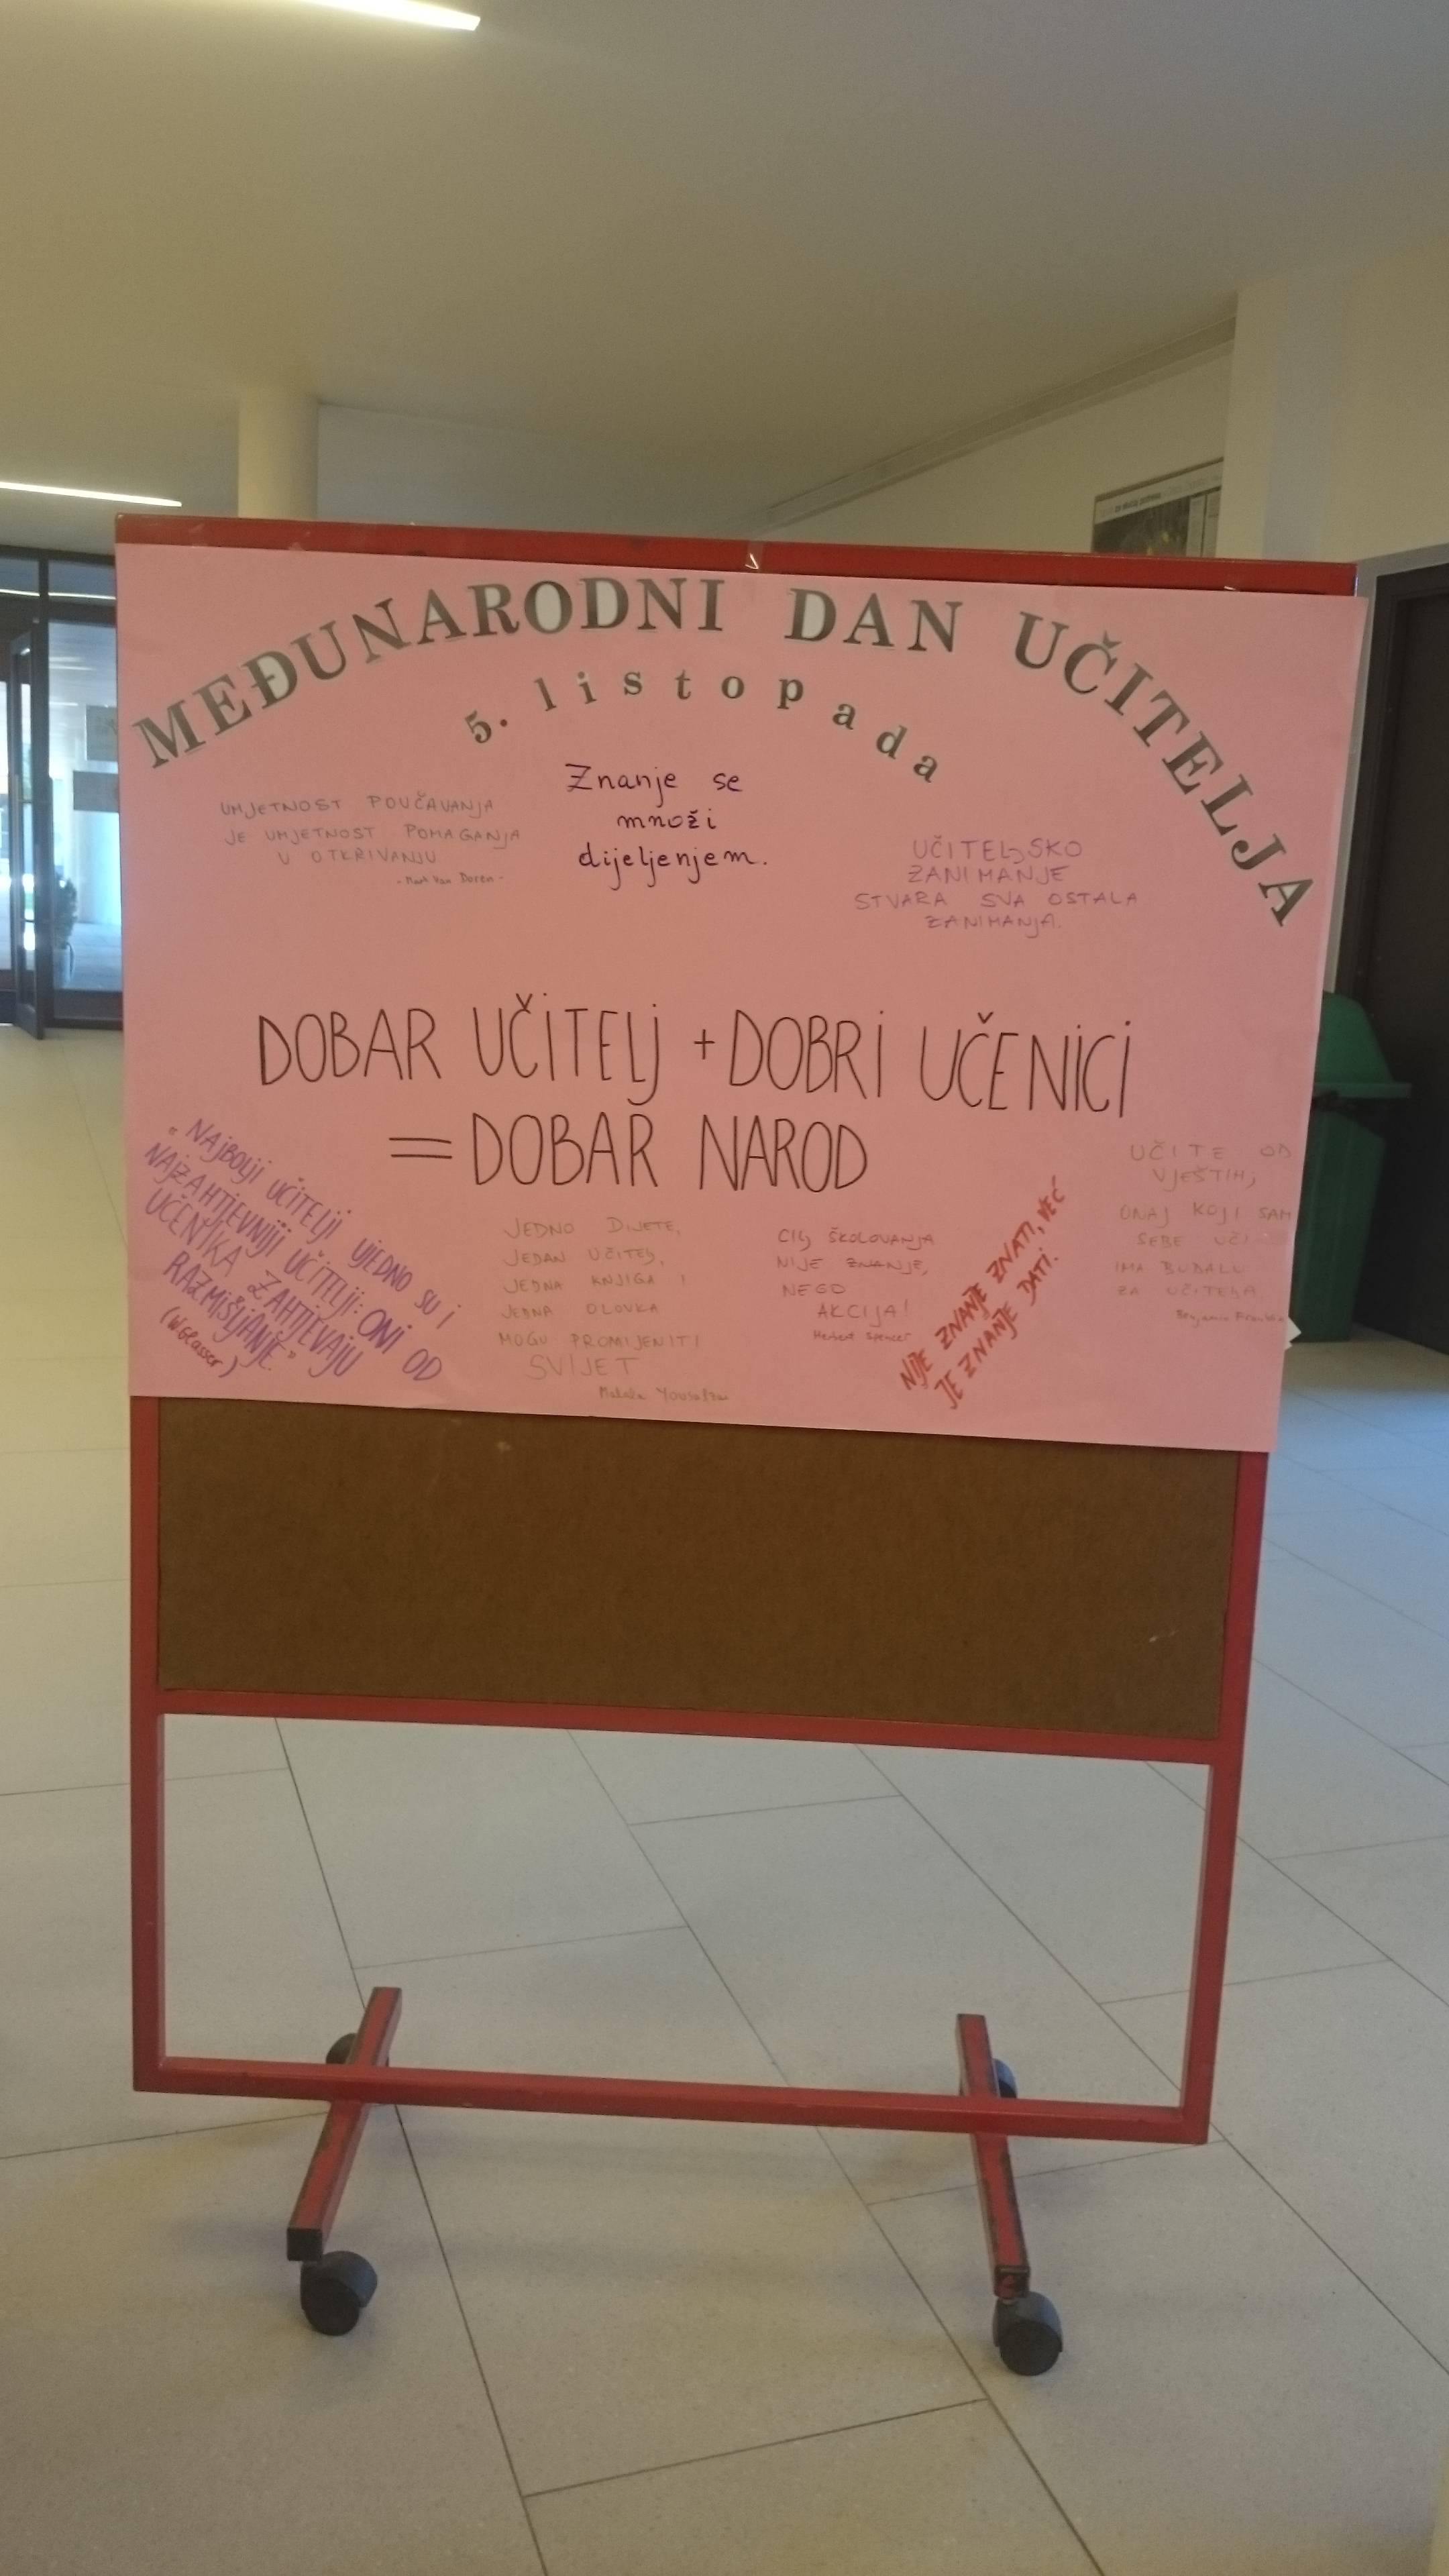 MEĐUNARODNI DAN UČITELJA
5. listopada
UMJETNOST POUČAVANJA
JE UMJETNOST POMAGANJA
U OTKRIVANJU
- Mark Van Doren -
Znanje se
množi
dijeljenjem.
UČITELJSKO
ZANIMANJE
STVARA SVA OSTALA
ZANIMANJA.
DOBAR UČITELJ + DOBRI UČENICI
= DOBAR NAROD
"NAJBOLJI UČITELJI UJEDNO SU I
NAJZAHTJEVNIJI UČITELJI: ONI OD
UČENIKA ZAHTJEVAJU
RAZMIŠLJANJE."
(W. Glasser)
JEDNO DIJETE,
JEDAN UČITELJ,
JEDNA KNJIGA I
JEDNA OLOVKA
MOGU PROMIJENITI
SVIJET
Malala Yousafzai
CILJ ŠKOLOVANJA
NIJE ZNANJE,
NEGO
AKCIJA!
Herbert Spencer
NIJE ZNANJE ZNATI, VEĆ
JE ZNANJE DATI.
UČITE OD
VJEŠTIH;
ONAJ KOJI SAM
SEBE UČI
IMA BUDALU
ZA UČITELJA
Benjamin Franklin